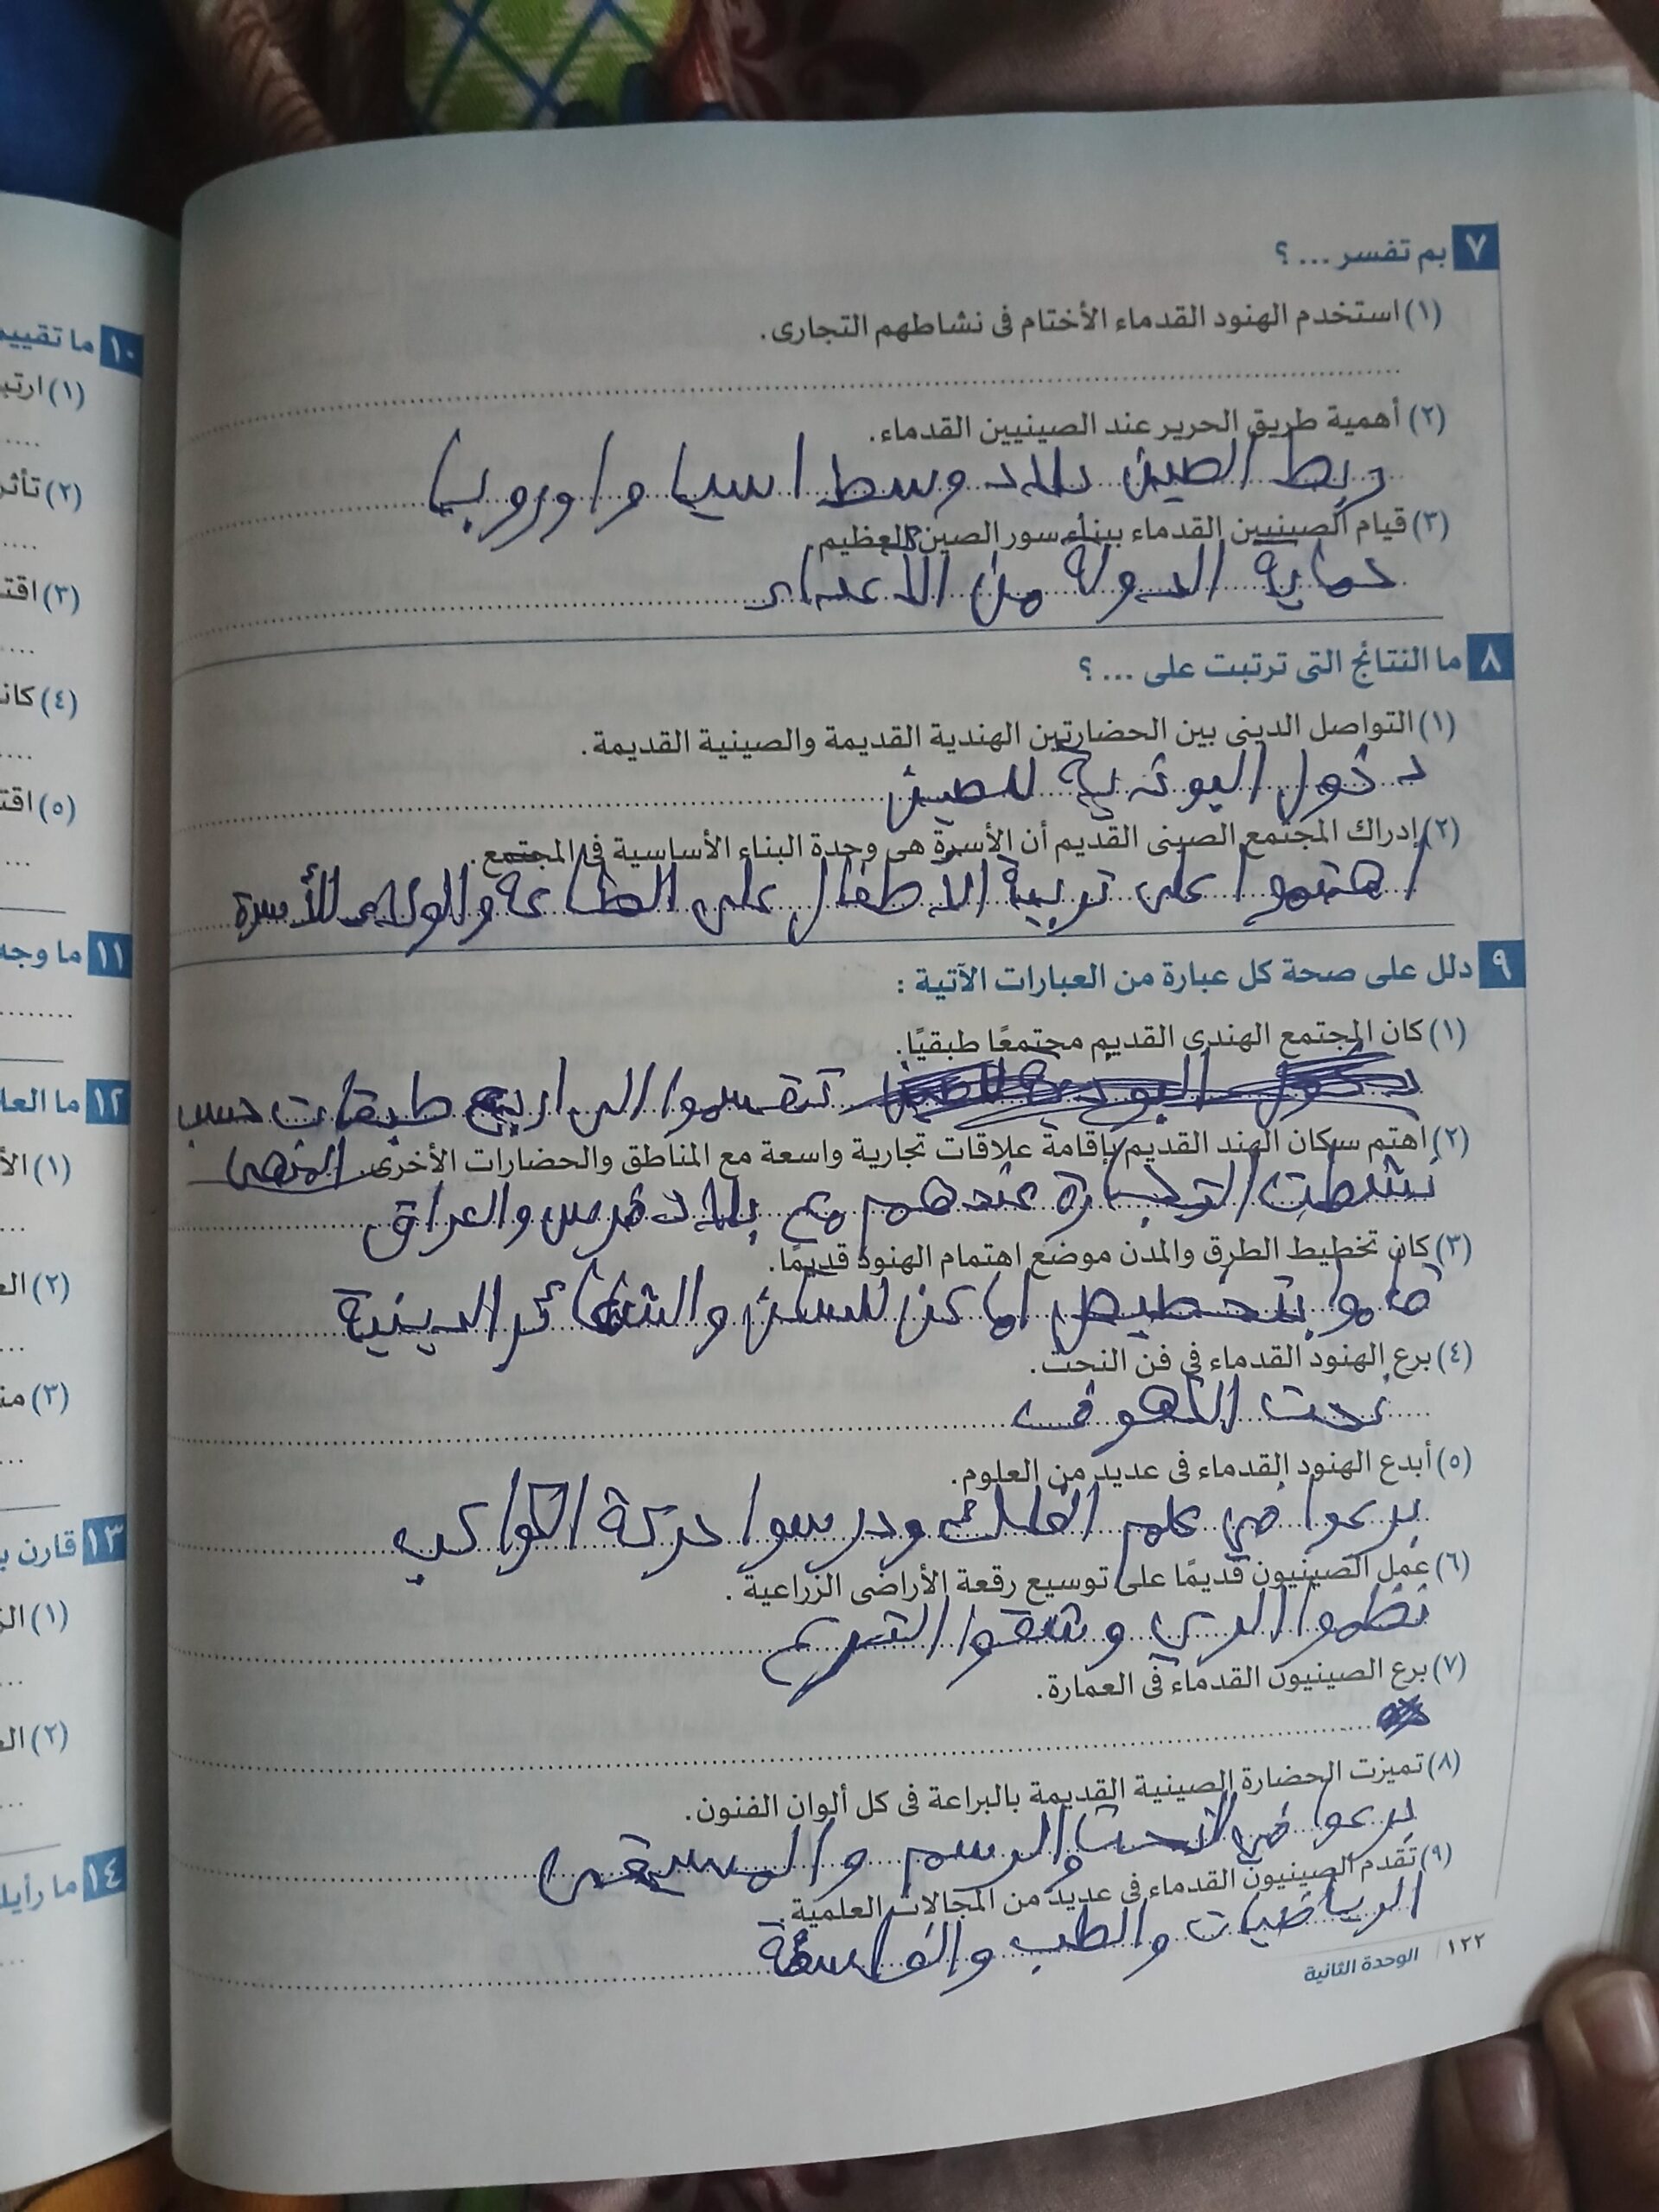 ٧ بم تفسر ... ؟
(١) استخدم الهنود القدماء الأختام فى نشاطهم التجارى.
(٢) أهمية طريق الحرير عند الصينيين القدماء.
ربط الصين بلاد وسط اسيا واوروبا
(٣) قيام الصينيين القدماء ببناء سور الصين العظيم.
حماية الدولة من الأعداء
٨ ما النتائج التى ترتبت على ... ؟
(١) التواصل الدينى بين الحضارتين الهندية القديمة والصينية القديمة.
دخول البوذية للصين
(٢) إدراك المجتمع الصينى القديم أن الأسرة هى وحدة البناء الأساسية فى المجتمع.
اهتموا على تربية الأطفال على الطاعة والولاء للأسرة
٩ دلل على صحة كل عبارة من العبارات الآتية :
(١) كان المجتمع الهندى القديم مجتمعًا طبقيًا.
تنقسموا الى اربع طبقات حسب
المهن
(٢) اهتم سكان الهند القديم بإقامة علاقات تجارية واسعة مع المناطق والحضارات الأخرى.
نشطت التجارة عندهم مع بلاد فرس والعراق
(٣) كان تخطيط الطرق والمدن موضع اهتمام الهنود قديمًا.
قاموا بتخطيط اماكن للسكن والشعائر الدينية
(٤) برع الهنود القدماء فى فن النحت.
نحت الكهوف
(٥) أبدع الهنود القدماء فى عديد من العلوم.
برعوا في علم الفلك ودرسوا حركة الكواكب
(٦) عمل الصينيون قديمًا على توسيع رقعة الأراضى الزراعية.
نظموا الري وشقوا الترع
(٧) برع الصينيون القدماء فى العمارة.
(٨) تميزت الحضارة الصينية القديمة بالبراعة فى كل ألوان الفنون.
برعوا في النحت والرسم والمسيقى
(٩) تقدم الصينيون القدماء فى عديد من المجالات العلمية.
الرياضيات والطب والفلسفة
١٢٢ الوحدة الثانية
١٠ ما تقييم
(١) ارتب
(٢) تأثر
(٣) اقت
(٤) كان
(٥) اقت
١١ ما وجه
١٢ ما العلا
(١) الأ
(٢) الع
(٣) من
١٣ قارن ب
(١) الز
(٢) الع
١٤ ما رأيك